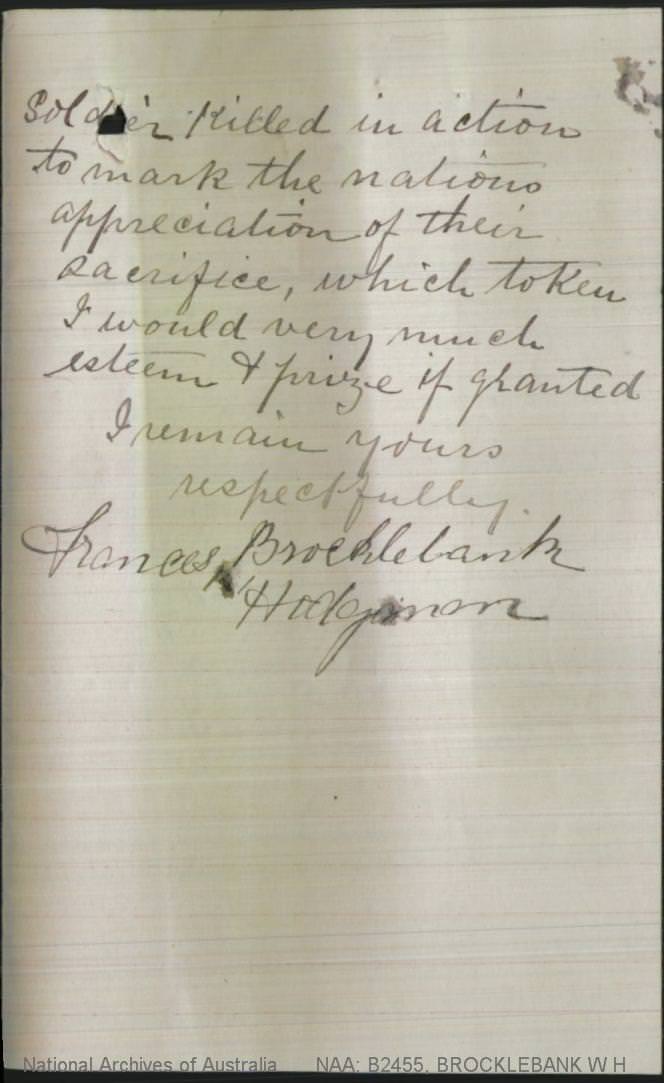 Soldier Killed in action
to mark the nations
appreciation of their
sacrifice, which token
I would very much
esteem & prize if granted
I remain yours
respectfully.
Frances Brocklebank
Hodgiman
National Archives of Australia NAA: B2455, BROCKLEBANK W H